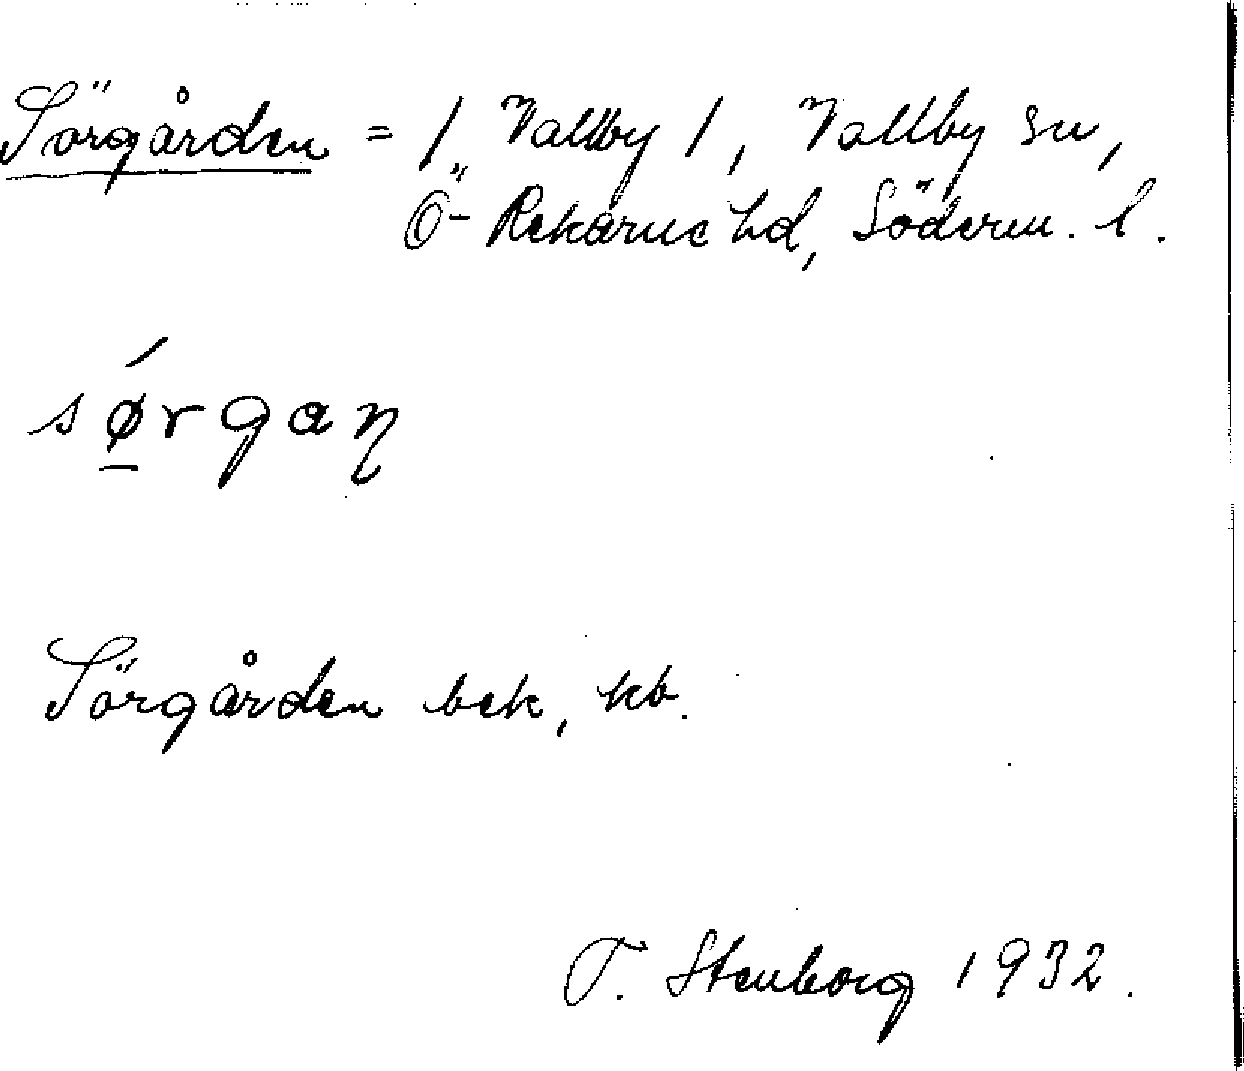 Sörgården = 1 Vallby 1, Vallby sn,
Ö-Rekarne hd, Söderm. l.
sǿ̲rgaꞑ
Sörgården bek, kb.
T. Stenborg 1932.